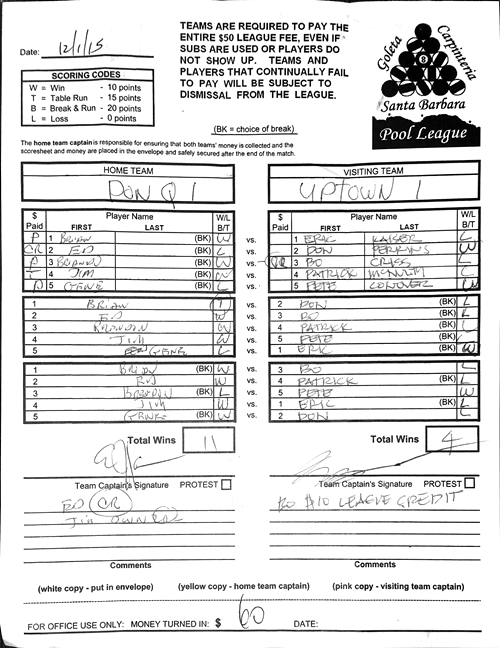 TEAMS ARE REQUIRED TO PAY THE
ENTIRE $50 LEAGUE FEE, EVEN IF
SUBS ARE USED OR PLAYERS DO
NOT SHOW UP. TEAMS AND
PLAYERS THAT CONTINUALLY FAIL
TO PAY WILL BE SUBJECT TO
DISMISSAL FROM THE LEAGUE.
(BK = choice of break)
Goleta
Carpinteria
8
Santa Barbara
Pool League
Date: 12/1/15
SCORING CODES
W = Win - 10 points
T = Table Run - 15 points
B = Break & Run - 20 points
L = Loss - 0 points
The home team captain is responsible for ensuring that both teams' money is collected and the
scoresheet and money are placed in the envelope and safely secured after the end of the match.
HOME TEAM VISITING TEAM
DON Q 1 UPTOWN 1
$ Paid Player Name FIRST LAST W/L B/T $ Paid Player Name FIRST LAST W/L B/T
P 1 BRIAN (BK) W vs. 1 ERIC KAISER L
CR 2 ED (BK) L vs. 2 DON PERKINS W
P 3 BRANDON (BK) W vs. 3 BO CRISS L
4 JIM (BK) W vs. 4 PATRICK L
P 5 GENE (BK) L vs. 5 PETE W
1 BRIAN T vs. 2 DON (BK) L
2 ED W vs. 3 BO (BK) L
3 BRANDON W vs. 4 PATRICK (BK) L
4 JIM W vs. 5 PETE (BK) L
5 GENE L vs. 1 ERIC (BK) W
1 BRIAN (BK) W vs. 3 BO L
2 ED W vs. 4 PATRICK (BK) L
3 BRANDON (BK) L vs. 5 PETE W
4 JIM W vs. 1 ERIC (BK) L
5 GENE (BK) W vs. 2 DON L
Total Wins 11 Total Wins 4
Team Captain's Signature PROTEST Team Captain's Signature PROTEST
ED CR BO $10 LEAGUE CREDIT
JIM OWNER
Comments Comments
(white copy - put in envelope) (yellow copy - home team captain) (pink copy - visiting team captain)
FOR OFFICE USE ONLY: MONEY TURNED IN: $ 60 DATE: